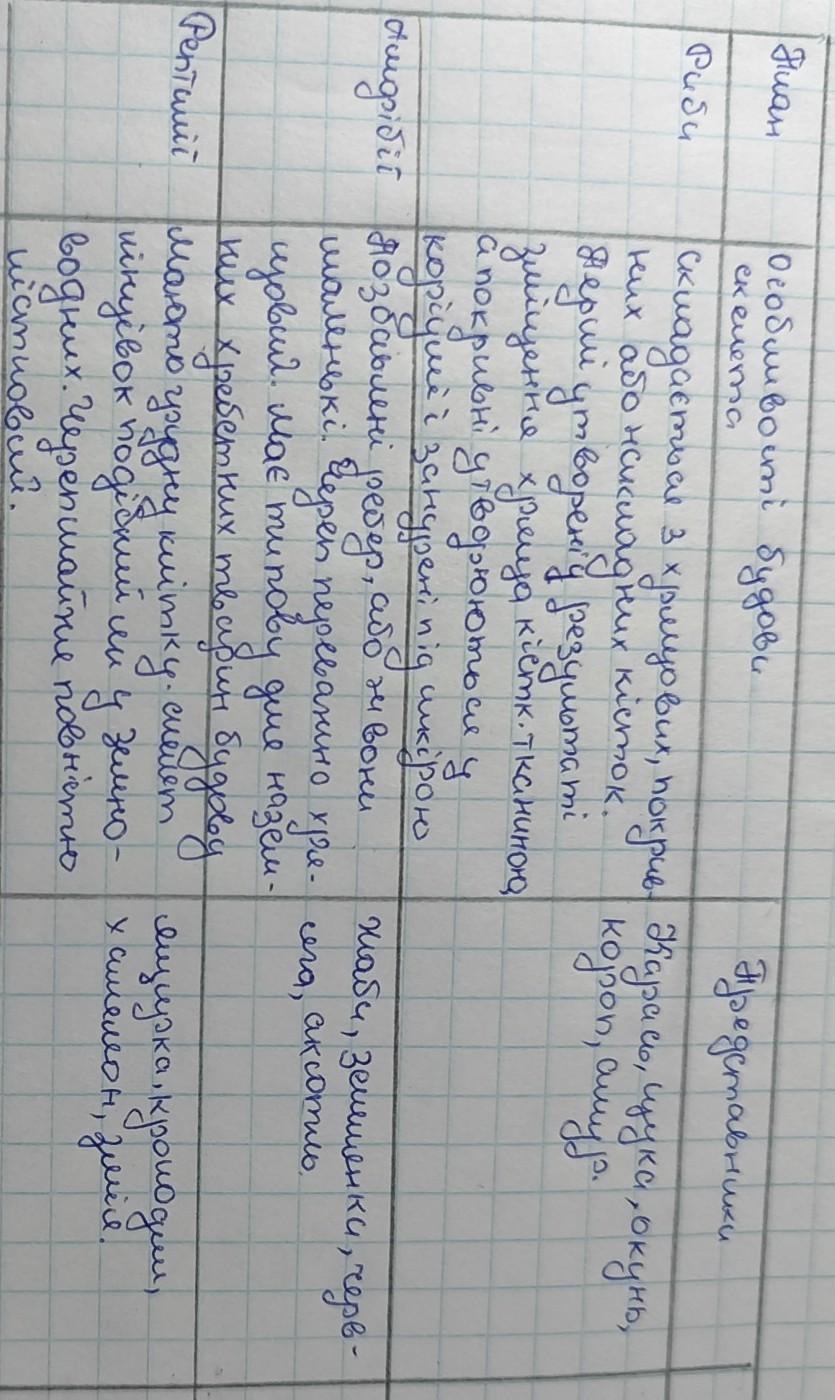 План
Особливості будови
скелета
Представники
Риби
складається з хрящових, покрив-
них або накладних кісток.
Перші утворені у результаті
зміщення хряща кістк. тканиною,
а покривні утворюються у
коріумі і занурені під шкірою
Карась, щука, окунь,
короп, амур.
Амфібії
Позбавлені ребер, або ж вони
маленькі. Череп переважно хря-
щовий. Має типову для назем-
них хребетних тварин будову
жаби, земленки, черв-
яга, аксотль
Рептилії
Мають грудну клітку. скелет
кінцівок подібний як у земно-
водних. Череп майже повністю
кістковий.
ящирка, крокодил,
хамелеон, змія.